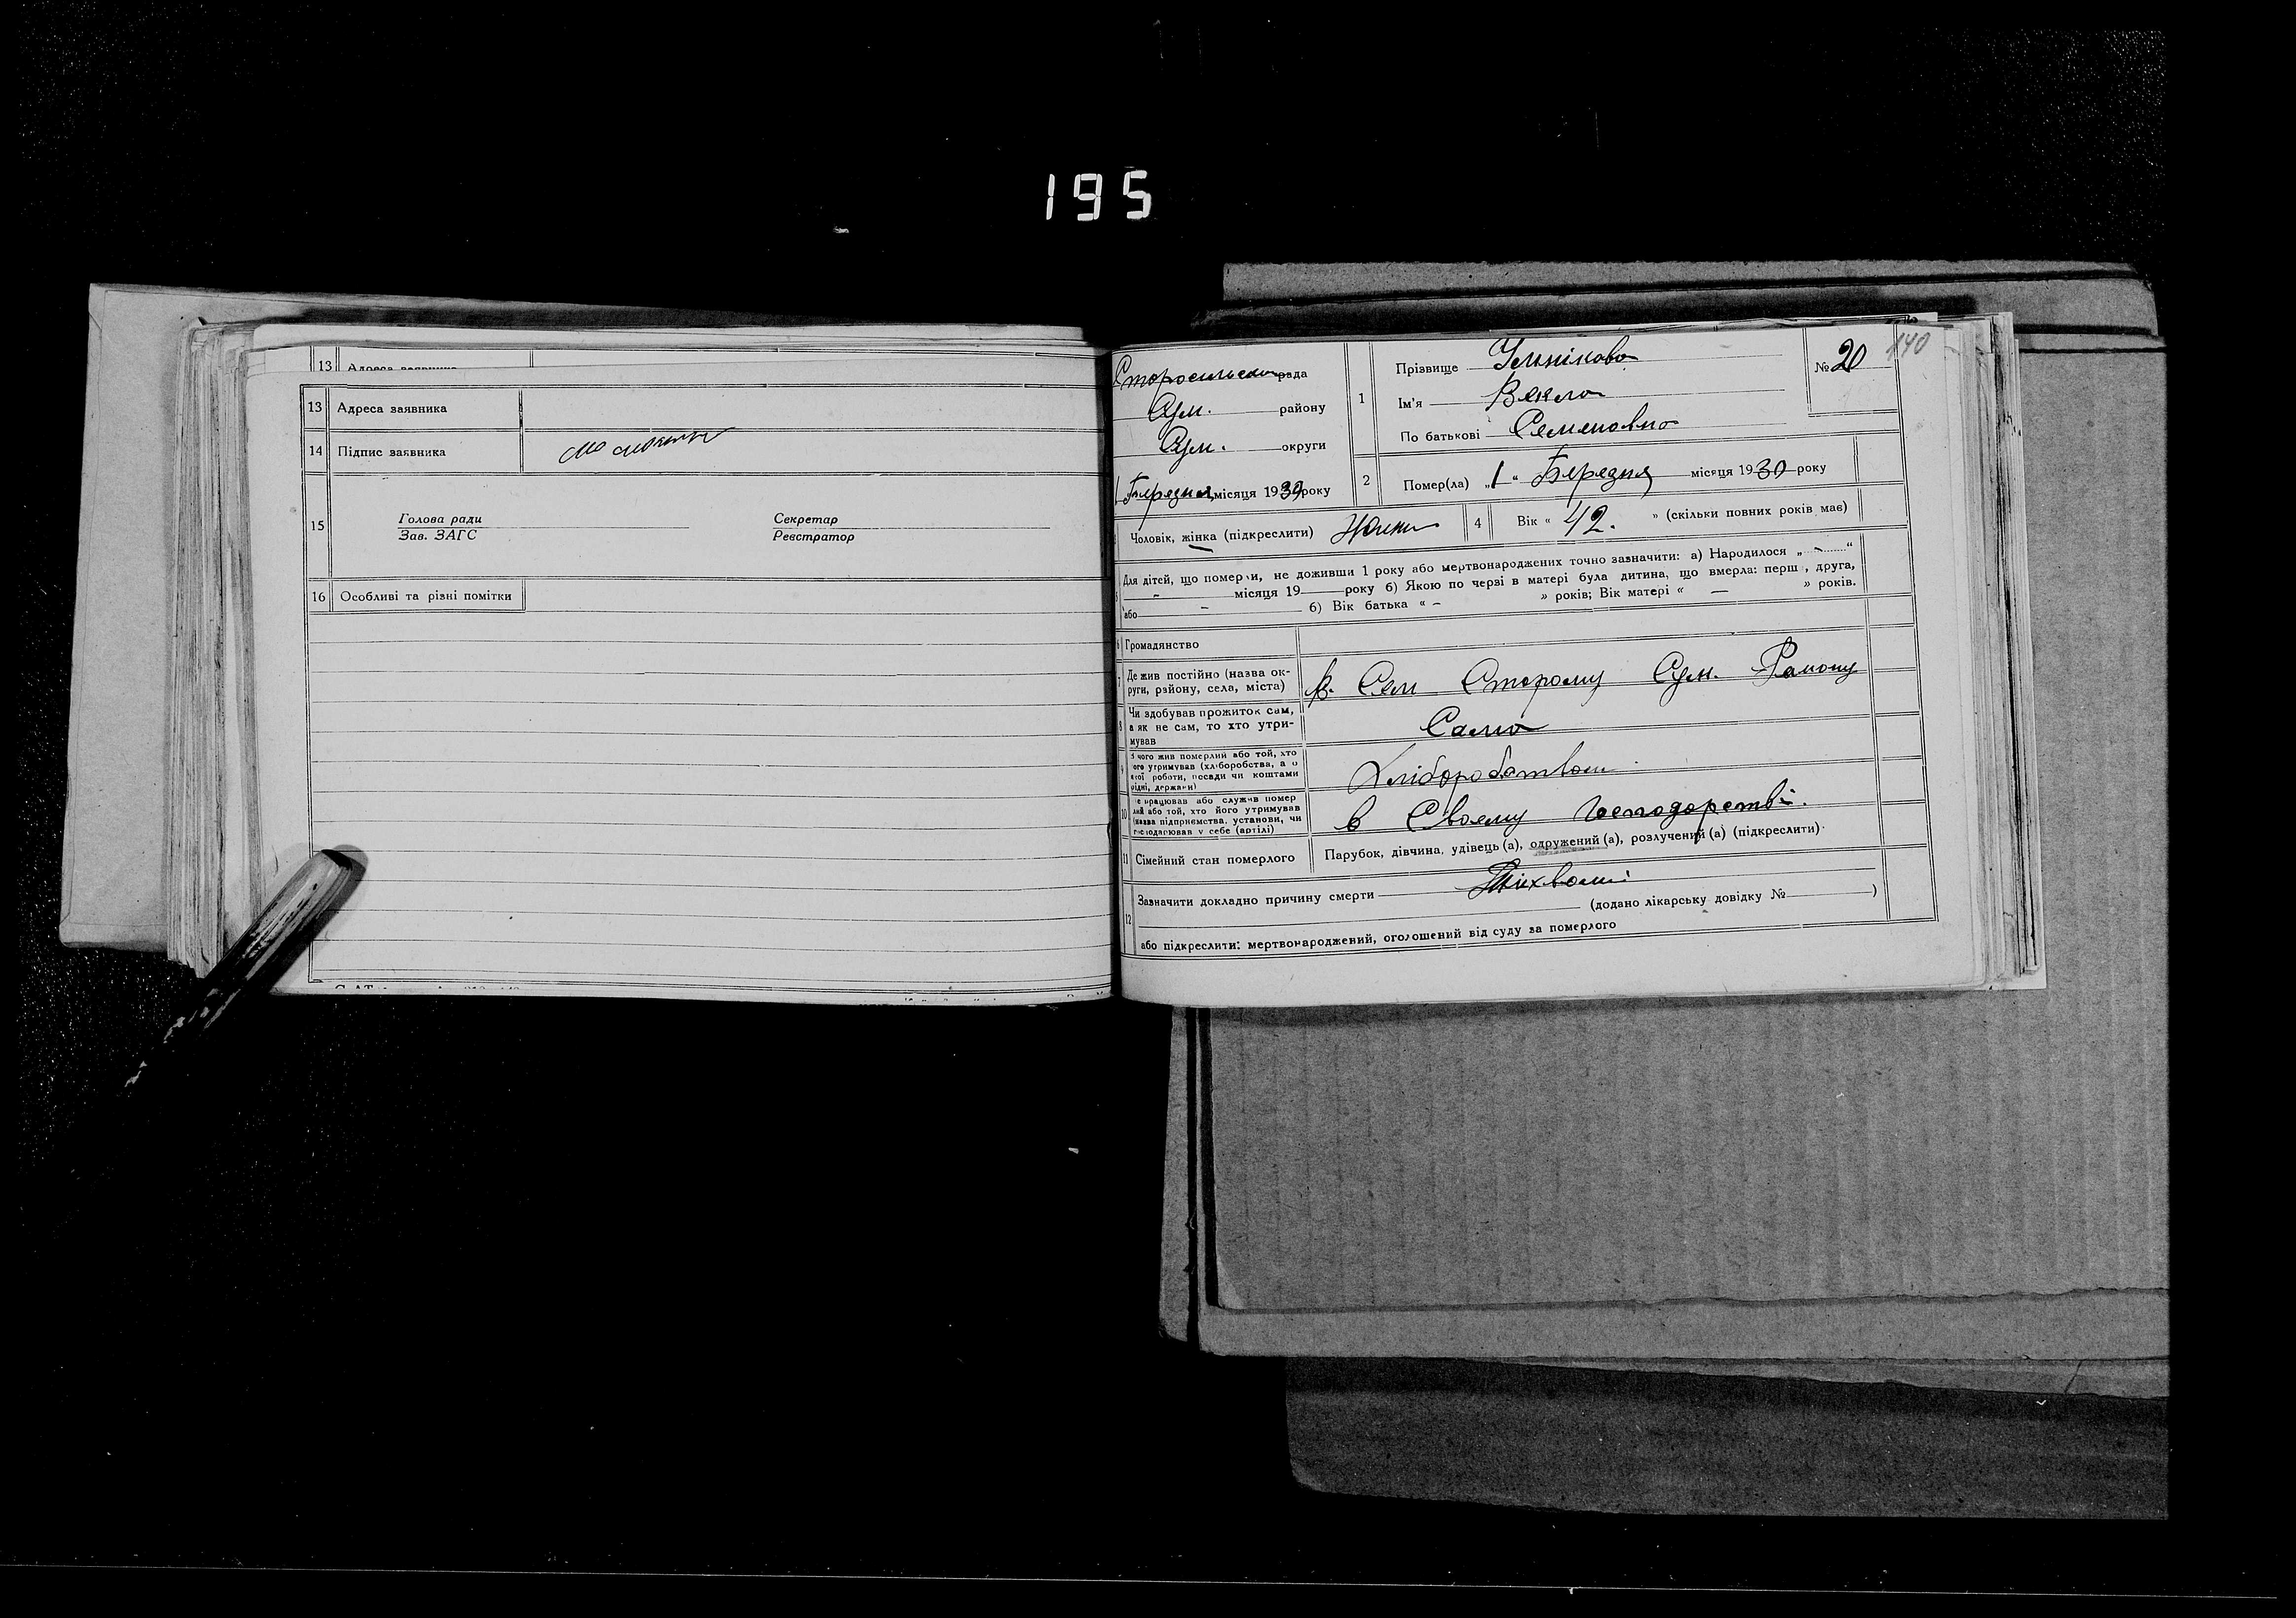 195
13 Адреса заявника
13 Адреса заявника
14 Підпис заявника
15 Голова ради Секретар
Зав. ЗАГС Реєстратор
16 Особливі та різні помітки
140
Старосильська рада
Сум. району
Сум. округи
1 Березня місяця 1930 року
1 Прізвище
Ім'я Векла
По батькові Семеновна
№ 20
2 Помер(ла) „1“ Березня місяця 1930 року
Чоловік, жінка (підкреслити) Жінка
4 Вік « 42. » (скільки повних років має)
Для дітей, що померли, не доживши 1 року або мертвонароджених точно зазначити: а) Народилося „ - “
- місяця 19 року б) Якою по черзі в матері була дитина, що вмерла: перша, друга,
або - б) Вік батька « - » років; Вік матері « — » років.
6 Громадянство
7 Де жив постійно (назва ок-
руги, району, села, міста)
В. Селі Старому Сум. Району
8 Чи здобував прожиток сам,
а як не сам, то хто утри-
мував
Сама
З чого жив померлий або той, хто
його утримував (хліборобства, а о
якої роботи, посади чи коштами
рідні, держави)
Хліборобством
10 Де працював або служив помер
лий або той, хто його утримував
(назва підприємства, установи, чи
господарював у себе (артілі)
в Своему Господарстві.
11 Сімейний стан померлого Парубок, дівчина, удівець (а), одружений (а), розлучений (а) (підкреслити)
12 Зазначити докладно причину смерти
(додано лікарську довідку № )
або підкреслити: мертвонароджений, оголошений від суду за померлого